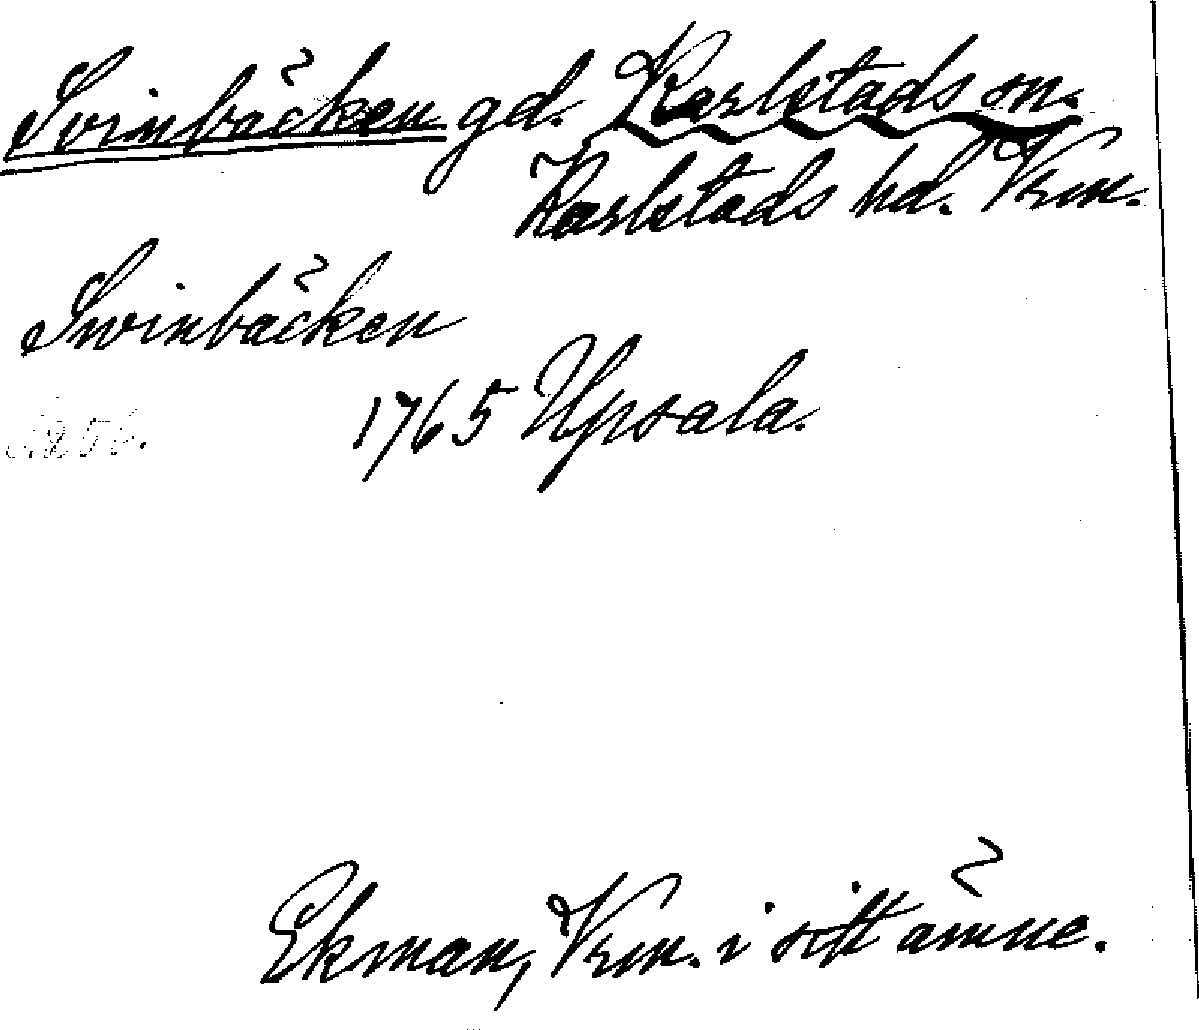 Svinbäcken gd. Karlstads sn.
Karlstads hd. Vrm.
Swinbäcken
s. 256.
1765 Upsala.
Ekman, Vrm. i sitt ämne.